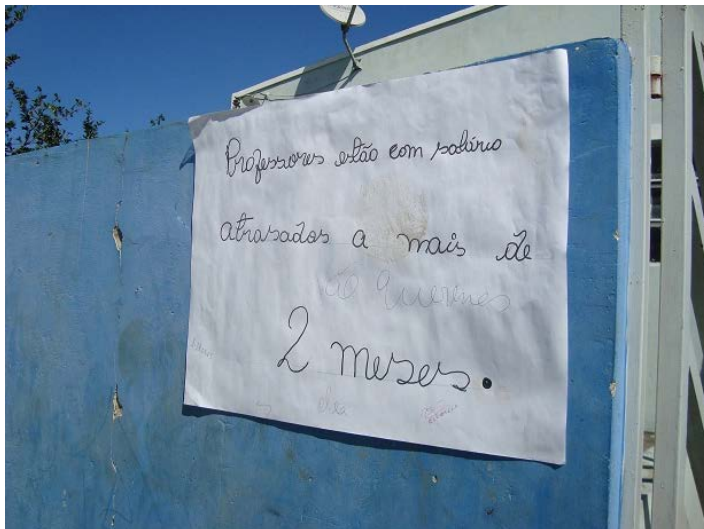 Professores estão com salário
atrasados a mais de
2 meses.